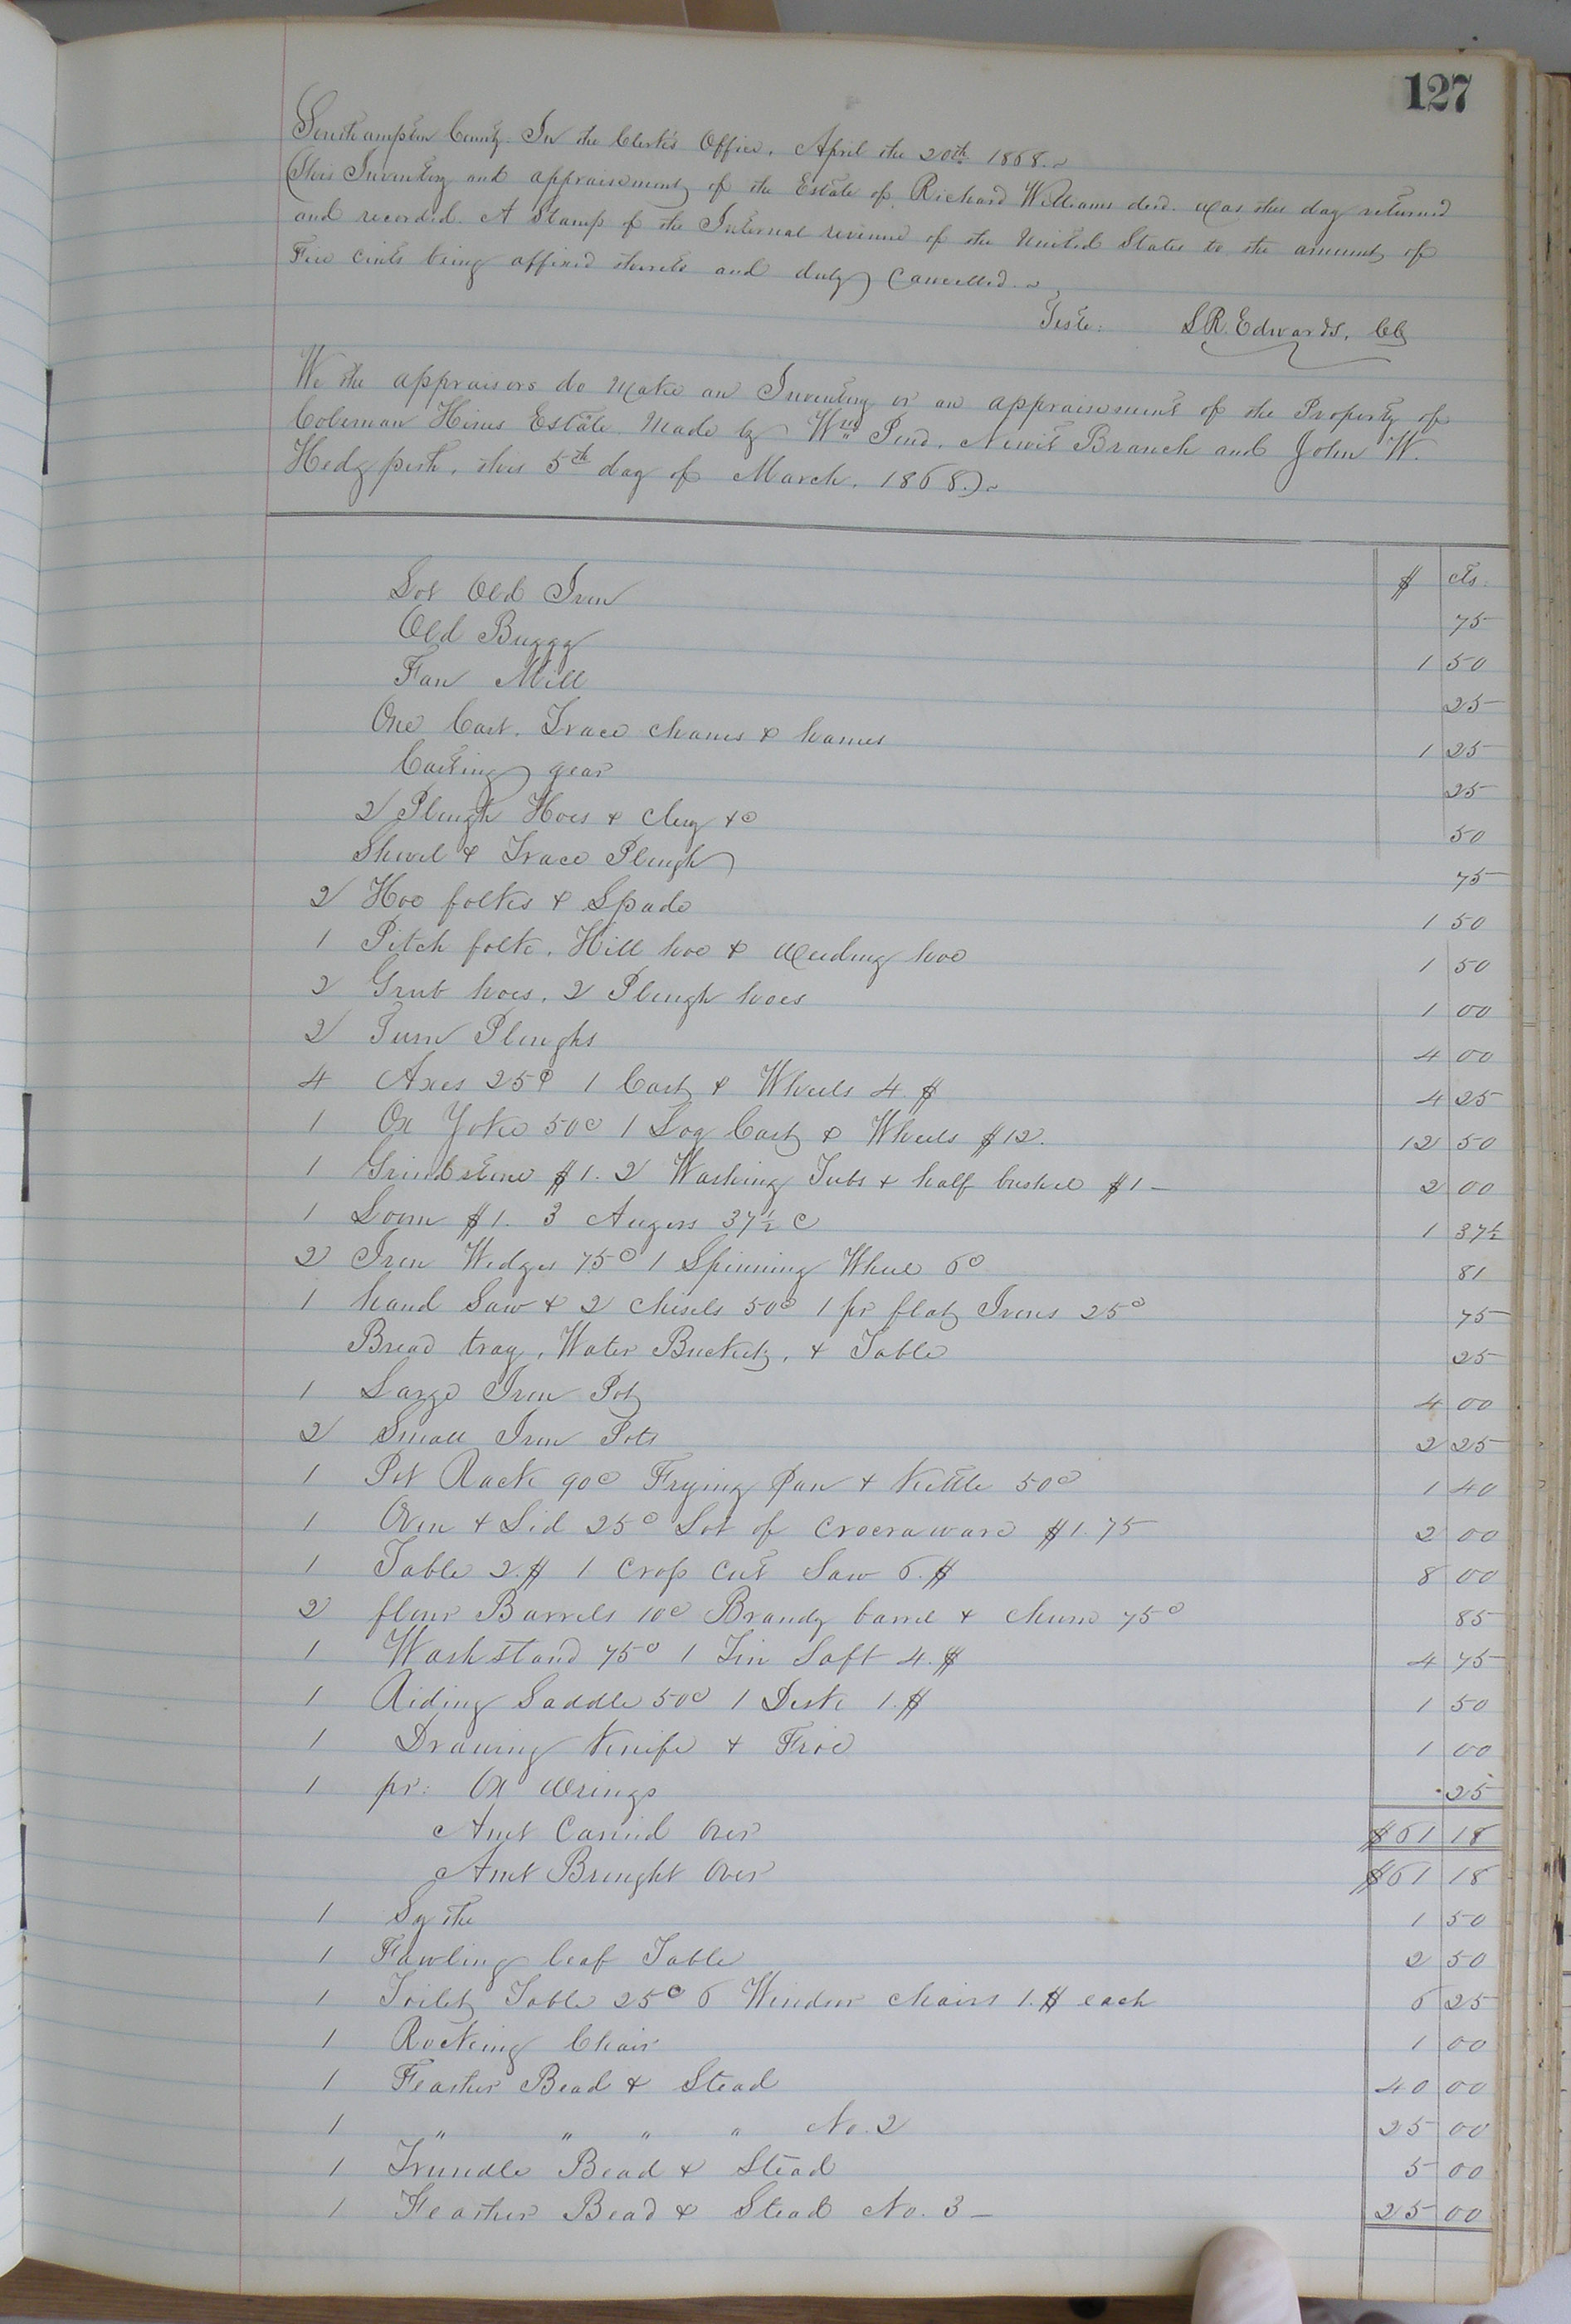 127
Southampton County. In the Clerk's Office, April the 20th 1868.
This Inventory and appraisement of the Estate of Richard Williams decd. was this day returned
and recorded. A Stamp of the Internal revenue of the United States to the amount of
Five cents being affixed thereto and duly Cancelled.
Teste: S R. Edwards, Clk
We the appraisors do make an Inventory or an appraisement of the Property of
Coleman Hines Estate Made by Wm Pond, Newit Branch and John W.
Hedgpeth, this 5th day of March, 1868.
$ cts.
Lot Old Iron 75
Old Buggy 1 50
Fan Mill 25
One Cart, Trace chanes & hames 1 25
Carting gear 25
2 Plough Hoes & Clug &c 50
Shovel & Trace Plough 75
2 Hoe folks & Spade 1 50
1 Pitch folk, Hill hoe & weeding hoe 1 50
2 Grub hoes, 2 Plough hoes 1 00
2 Turn Ploughs 4 00
4 Axes 25c 1 Cart & Wheels 4.$ 4 25
1 Ox Yoke 50c 1 Log Cart & Wheels $12. 12 50
1 Grindstone $1. 2 Washing Tubs & half bushel $1 - 2 00
1 Loom $1. 3 Augers 37½ c 1 37½
2 Iron Wedges 75c 1 Spinning Wheel 6c 81
1 hand Saw & 2 chisels 50c 1 pr flat Irons 25c 75
Bread tray, Water Bucket, & Table 25
1 Large Iron Pot 4 00
2 Small Iron Pots 2 25
1 Pot Rack 90c Frying Pan & Kittle 50c 1 40
1 Oven & Lid 25c Lot of Crocraware $1.75 2 00
1 Table 2.$ 1 Crop Cut Saw 6.$ 8 00
2 flour Barrels 10c Brandy barrel & Churn 75c 85
1 Wash stand 75c 1 Tin Saft 4.$ 4 75
1 Riding Saddle 50c 1 Desk 1.$ 1 50
1 Drawing Knife & Froe 1 00
1 pr: Ox Wrings 25
Amt Carried Over $61 18
Amt Brought Over $61 18
1 Sythe 1 50
1 Fawling leaf Table 2 50
1 Toilet Table 25c 6 Windsor chairs 1.$ each 6 25
1 Rocking Chair 1 00
1 Feather Bead & Stead 40 00
1 " " " " No. 2 25 00
1 Trundle Bead & Stead 5 00
1 Feather Bead & Stead No. 3 - 25 00